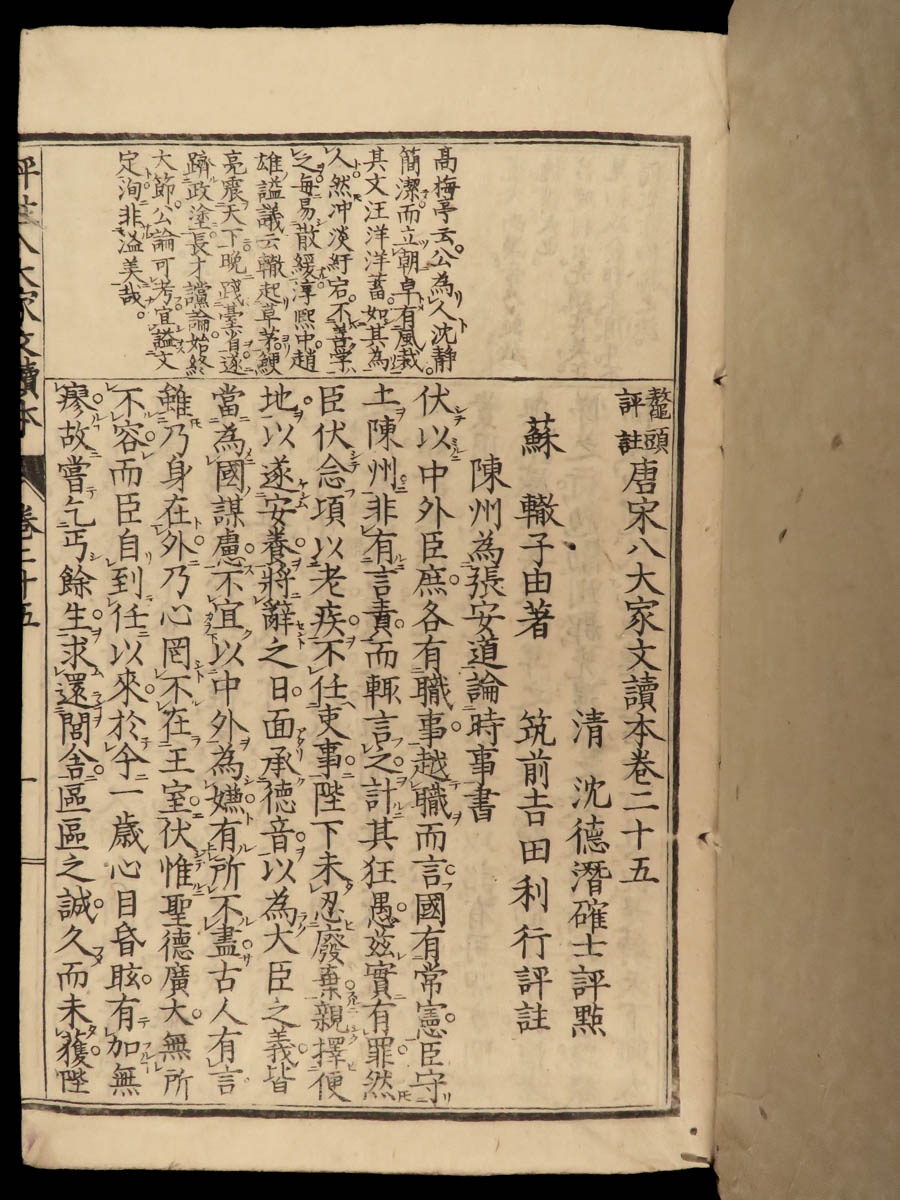 鼇頭
評註
唐宋八大家文讀本卷二十五
清 沈德潛確士評點
蘇轍子由著 筑前吉田利行評註
陳州為張安道論時事書
伏以中外臣庶各有職事越職而言國有常憲臣守
土陳州非有言責而輒言之計其狂愚茲實有罪然
臣伏念項以老疾不任吏事陛下未忍廢棄親擇便
地以遂安養將辭之日面承德音以為大臣之義皆
當為國謀慮不宜以中外為嫌有所不盡古人有言
雖乃身在外乃心罔不在王室伏惟聖德廣大無所
不容而臣自到任以來於今一歲心目昏眩有加無
瘳故嘗乞丐餘生求還閭舍區區之誠久而未獲陛
高梅亭云公為人沈靜
簡潔而立朝卓有風裁
其文汪洋洋蓄如其為
人然冲淡紆宕不善學
之每易散緩淳熙中趙
雄謚議云轍起草茅鯁
亮震天下晩踐臺省遂
躋政塗長才讜論始終
大節公論可考宜謚文
定洵非溢美哉
評註八大家文讀本
卷二十五
一